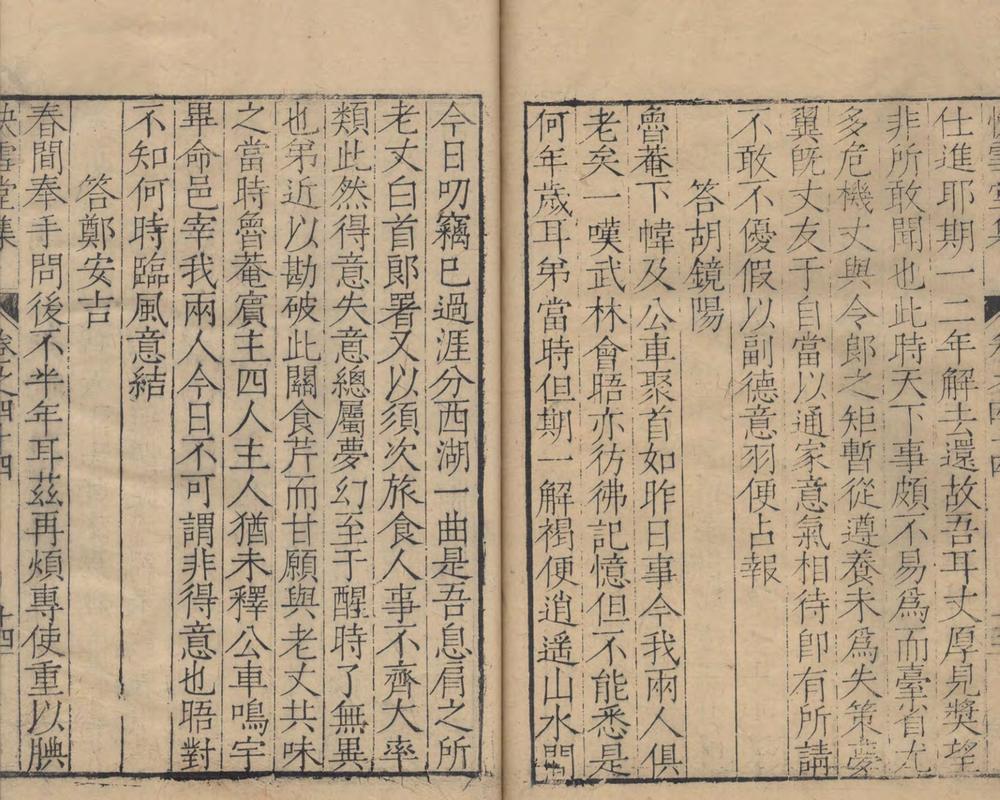 仕進耶期一二年解去還故吾耳丈厚見獎望
非所敢聞也此時天下事頗不易為而臺省尤
多危機丈與令郎之矩暫從遵養未為失策
翼旣丈友于自當以通家意氣相待卽有所請
不敢不優假以副德意羽便占報
答胡鏡陽
魯菴下幃及公車聚首如昨日事今我兩人俱
老矣一嘆武林會晤亦彷彿記憶但不能悉是
何年歲耳弟當時但期一解褐便逍遥山水間
今日叨竊已過涯分西湖一曲是吾息肩之所
老丈白首郎署又以須次旅食人事不齊大率
類此然得意失意總屬夢幻至于醒時了無異
也弟近以勘破此關食芹而甘願與老丈共味
之當時魯菴賔主四人主人猶未釋公車鳴宇
畢命邑宰我兩人今日不可謂非得意也晤對
不知何時臨風意結
答鄭安吉
春間奉手問後不半年耳茲再煩專使重以腆
快雪堂集 卷之四十四 十四